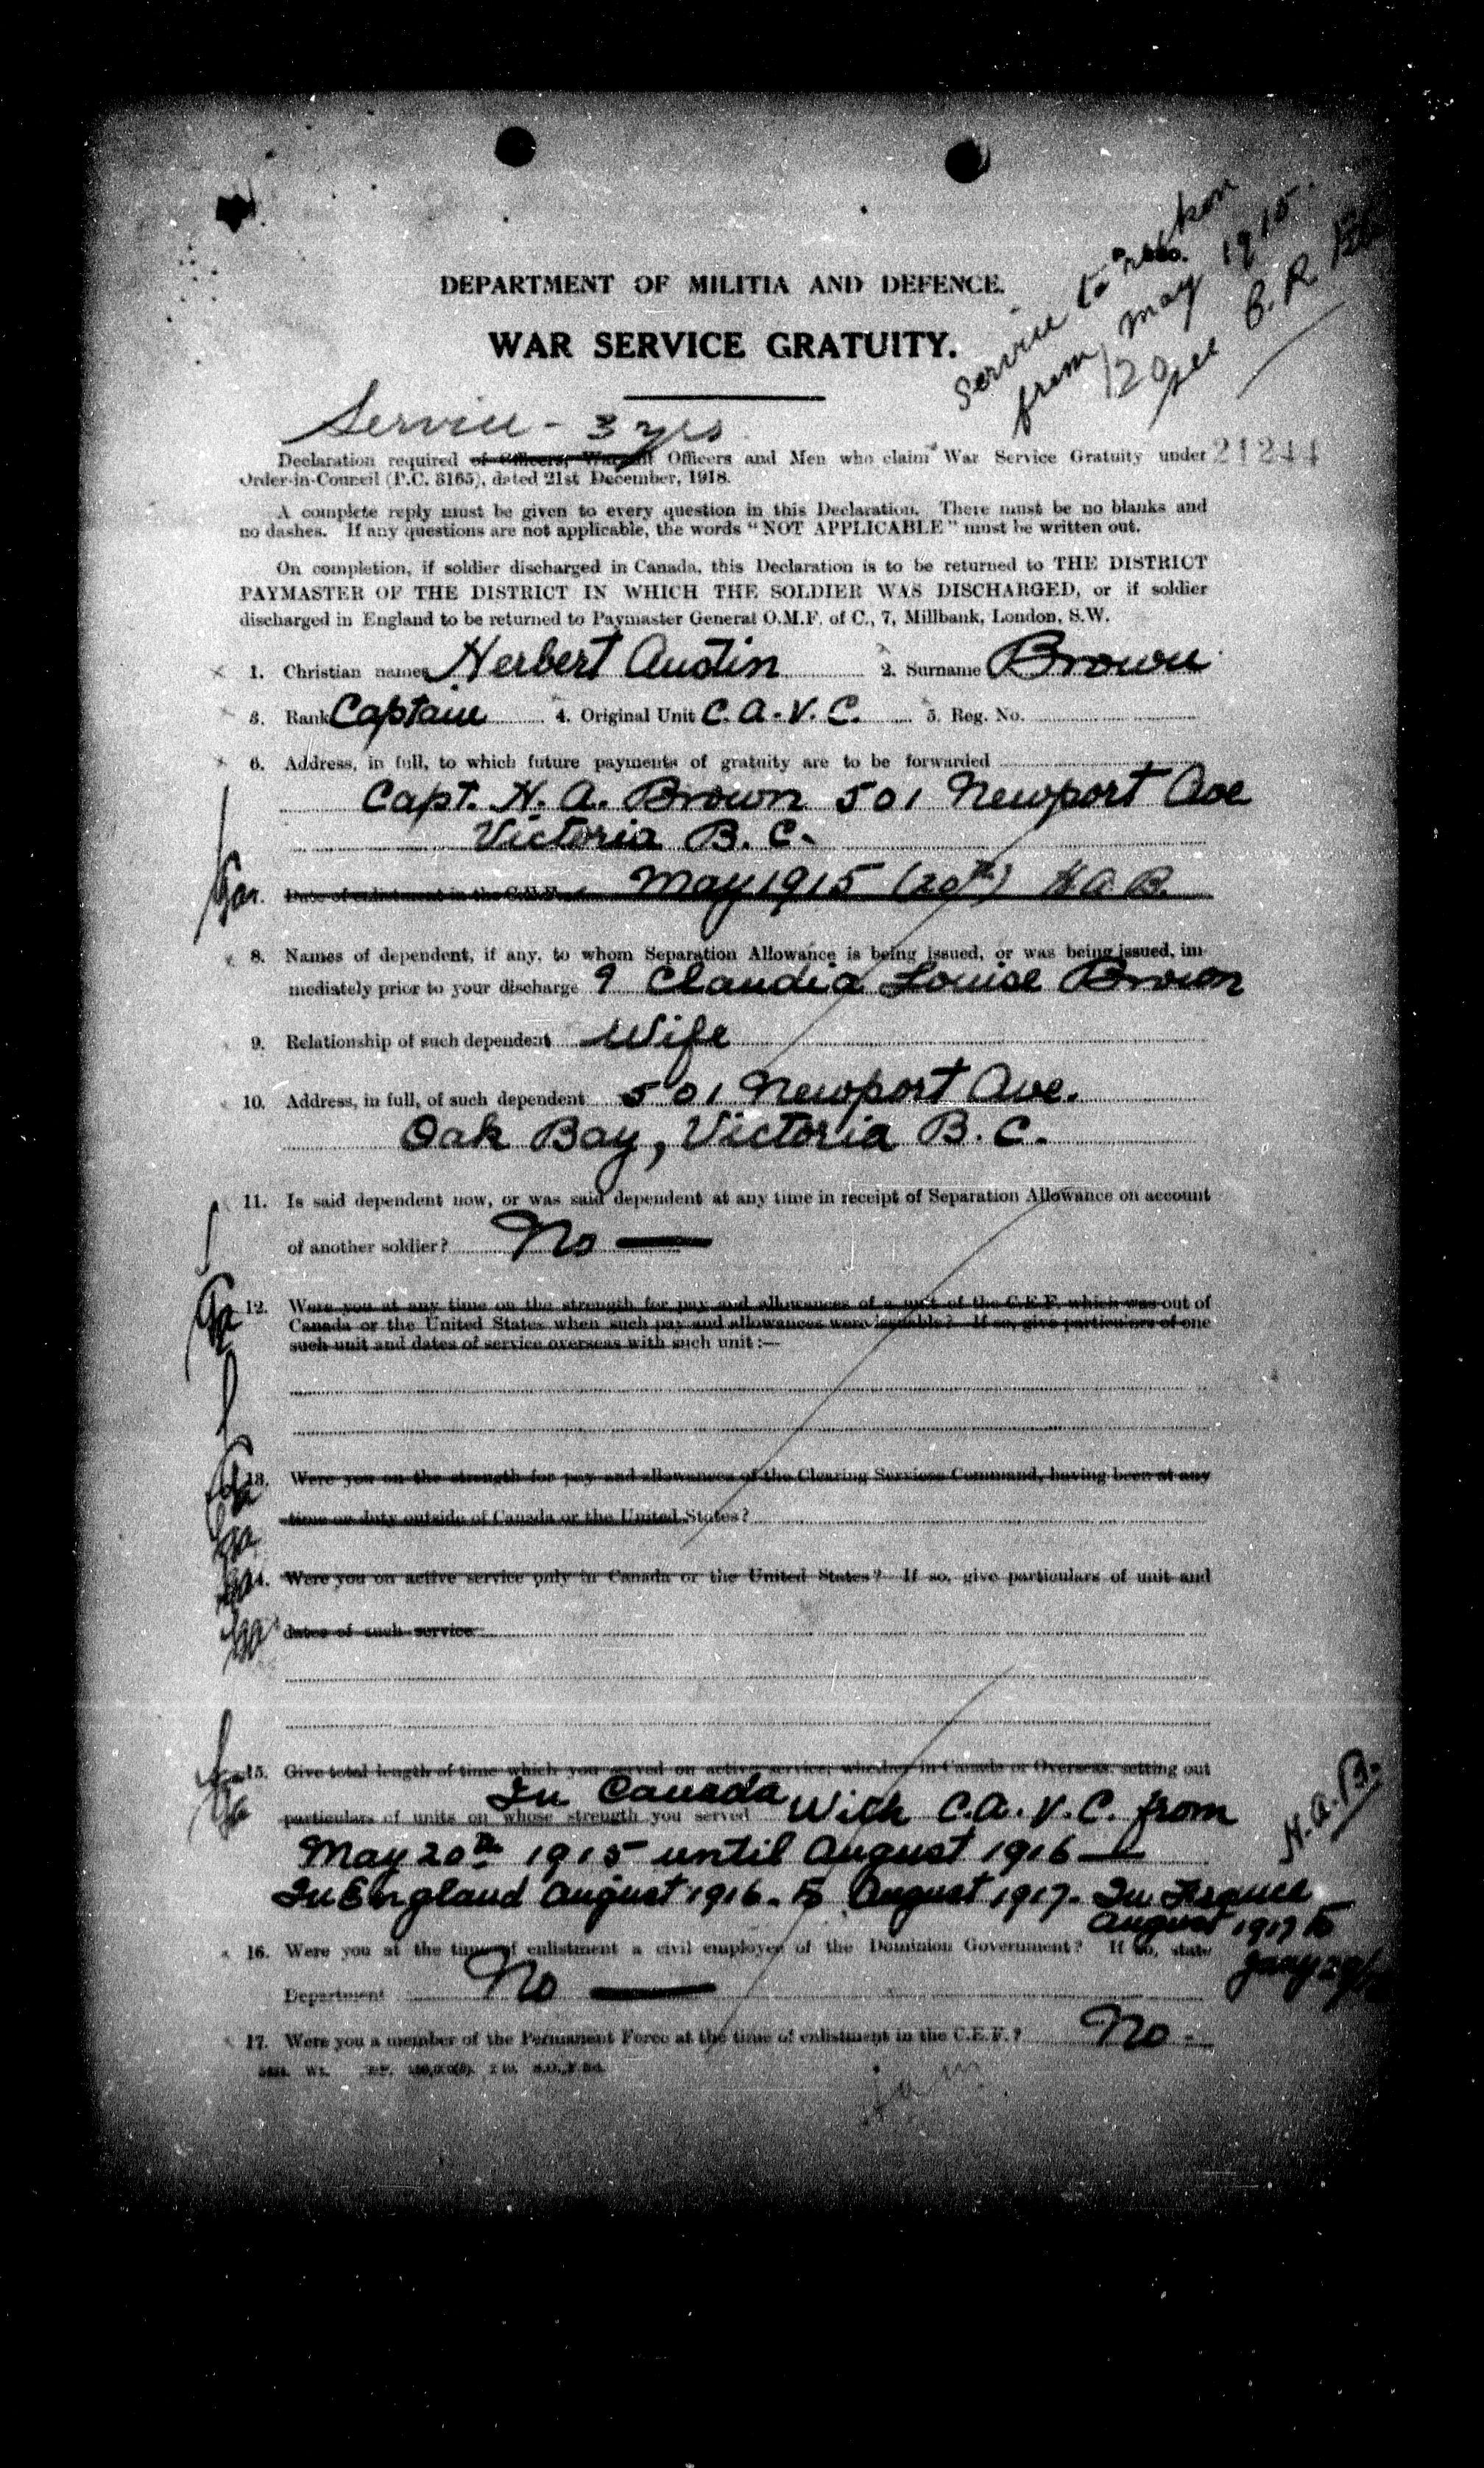 Service to reckon
from May 1915.
120 see B. R.
DEPARTMENT OF MILITIA AND DEFENCE.
WAR SERVICE GRATUITY.
Service - 3 yrs
Declaration required of Officers, Warrant Officers and Men who claim War Service Gratuity under 21244
Order-in-Council (P.C. 3165), dated 21st December, 1918.
A complete reply must be given to every question in this Declaration. There must be no blanks and
no dashes. If any questions are not applicable, the words "NOT APPLICABLE" must be written out.
On completion, if soldier discharged in Canada, this Declaration is to be returned to THE DISTRICT
PAYMASTER OF THE DISTRICT IN WHICH THE SOLDIER WAS DISCHARGED, or if soldier
discharged in England to be returned to Paymaster General O.M.F. of C., 7, Millbank, London, S.W.
1. Christian names Herbert Austin 2. Surname Brown
3. Rank Captain 4. Original Unit C. A. V. C. 5. Reg. No.
6. Address, in full, to which future payments of gratuity are to be forwarded
Capt. H. A. Brown 501 Newport Ave
Victoria B. C.
Date of enlistment in the C.E.F. May 1915 (20th) H. A. B.
8. Names of dependent, if any, to whom Separation Allowance is being issued, or was being issued, im-
mediately prior to your discharge ? Claudia Louise Brown
9. Relationship of such dependent Wife
10. Address, in full, of such dependent 501 Newport Ave.
Oak Bay, Victoria B. C.
11. Is said dependent now, or was said dependent at any time in receipt of Separation Allowance on account
of another soldier? No —
12. Were you at any time on the strength for pay and allowances of a unit of the C.E.F. which was out of
Canada or the United States when such pay and allowances were issuable? If so, give particulars of one
such unit and dates of service overseas with such unit:—
13. Were you on the strength for pay and allowances of the Clearing Services Command, having been at any
time on duty outside of Canada or the United States?
14. Were you on active service only in Canada or the United States? If so, give particulars of unit and
dates of such service
15. Give total length of time which you served on active service, whether in Canada or Overseas, setting out
particulars of units on whose strength you served In Canada With C. A. V. C. from
May 20th 1915 until August 1916 — H. A. B.
In England August 1916 - to August 1917. In France
August 1917 to
16. Were you at the time of enlistment a civil employee of the Dominion Government? If so, state
Department No —
17. Were you a member of the Permanent Force at the time of enlistment in the C.E.F.? No -